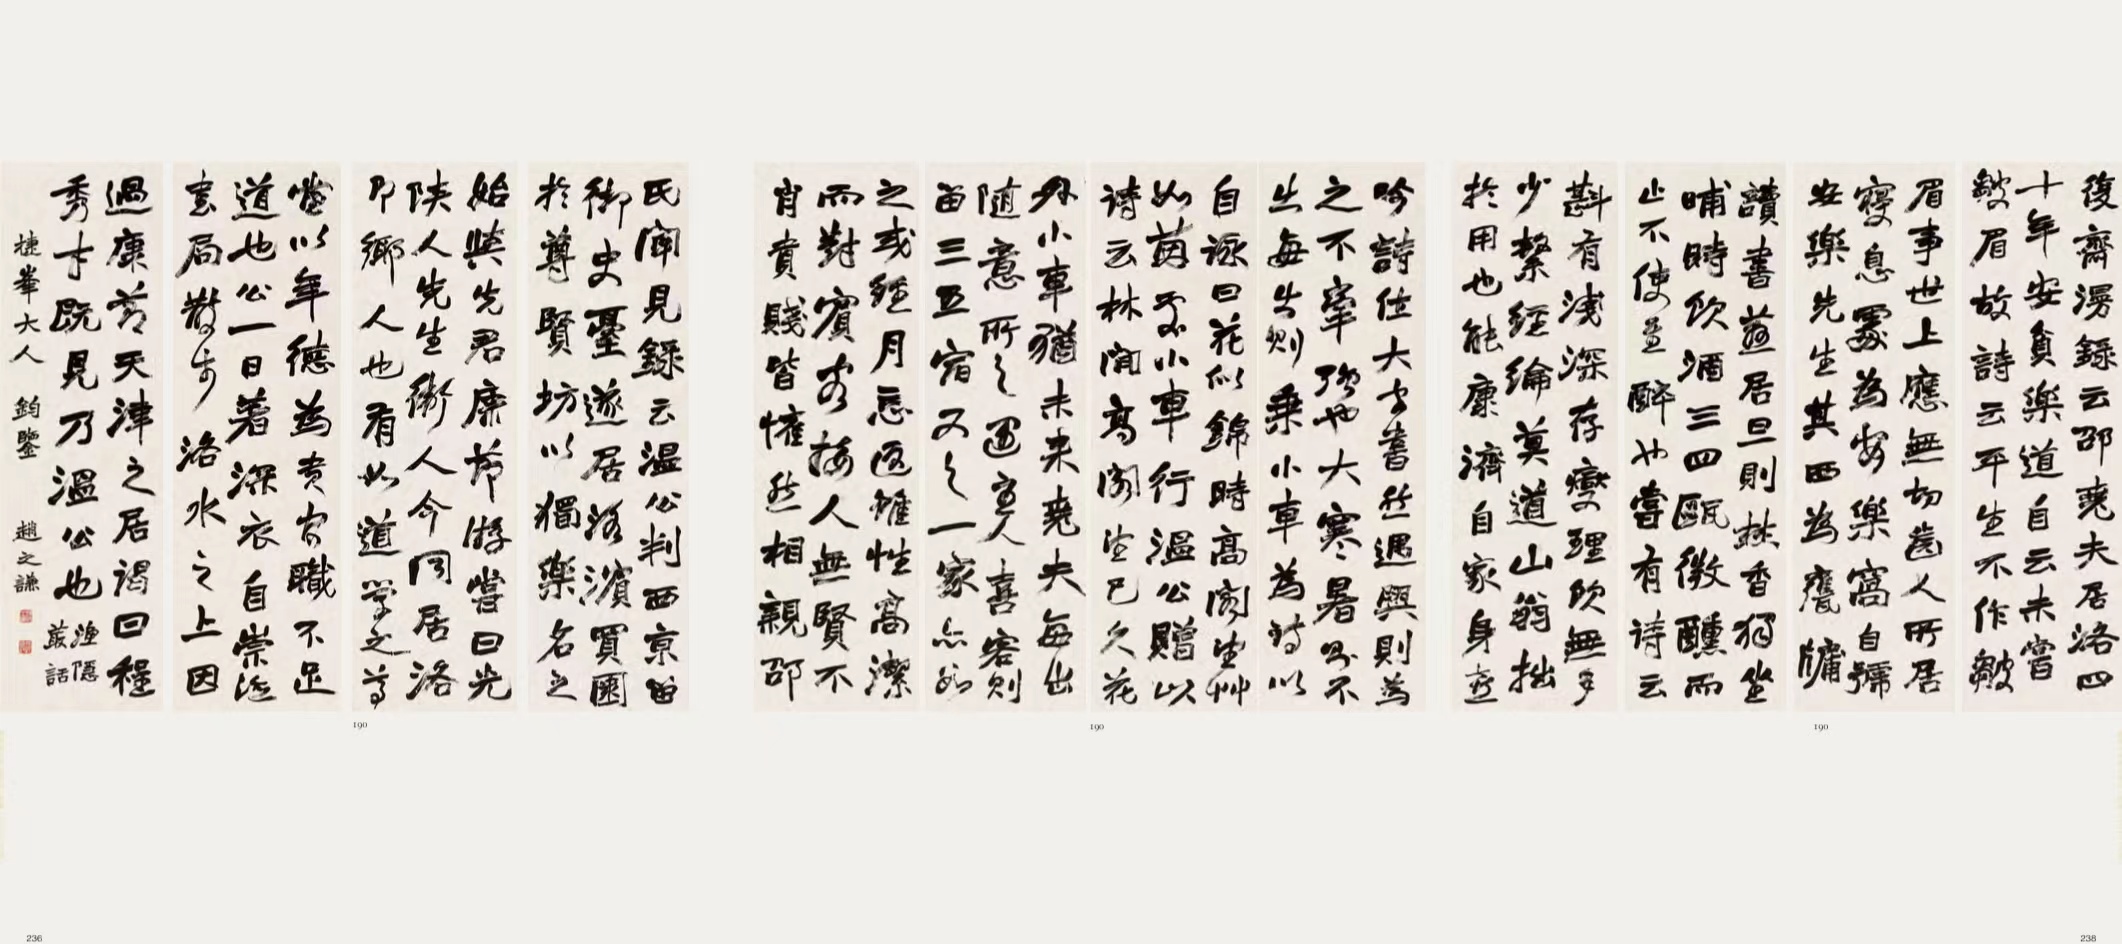 復齋漫錄云邵堯夫居洛四
十年安貧樂道自云未嘗
皺眉故詩云平生不作皺
眉事世上應無切齒人所居
寢息處為安樂窩自號
安樂先生其西為甕牖
讀書燕居旦則焚香獨坐
晡時飲酒三四甌微醺而
止不使至醉也嘗有诗云
斟有淺深存燮理飲無多
少繫經綸莫道山翁拙
於用也能康濟自家身喜
吟詩作大字書然遇興則為
之不牽強也大寒暑則不
出每出則乘小車為詩以
自詠曰花似錦時高閣望艸
如茵處小車行溫公贈以
诗云林間高閣望已久花
外小車猶未來堯夫每出
隨意所之遇主人喜客則
留三五宿又之一家亦如
之或經月忘返雖性高潔
而對賓客接人無賢不
肖貴賤皆懽然相親邵
氏聞見錄云温公判西京留
御史臺遂居洛濱買園
於尊賢坊以獨樂名之
始與先君康節游嘗曰光
陝人先生衛人今同居洛
即鄉人也有如道學之尊
當以年德為貴官職不足
道也公一日著深衣自崇德
書局散步洛水之上因
過康節天津之居謁曰程
秀才既見乃溫公也 漁隱
叢話
捷峯大人 鈞鑒 趙之謙
190
190
190
236
238